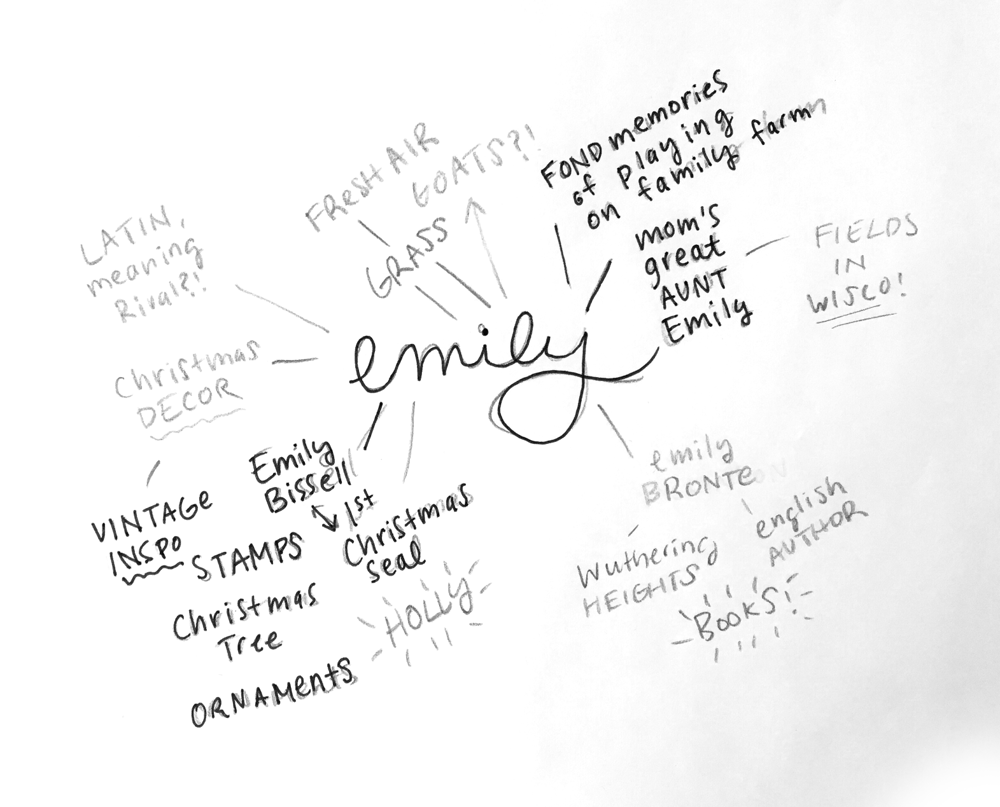 LATIN,
meaning
Rival?!
FRESH AIR
GRASS
GOATS?!
FOND memories
of Playing
on family farm
mom's
great
AUNT
Emily
FIELDS
IN
WISCO!
emily
Christmas
DECOR
VINTAGE
INSPO
Emily
Bissell
1st
Christmas
seal
STAMPS
Christmas
Tree
ORNAMENTS
HOLLY
emily
BRONTE
Wuthering
HEIGHTS
english
AUTHOR
BOOKS!